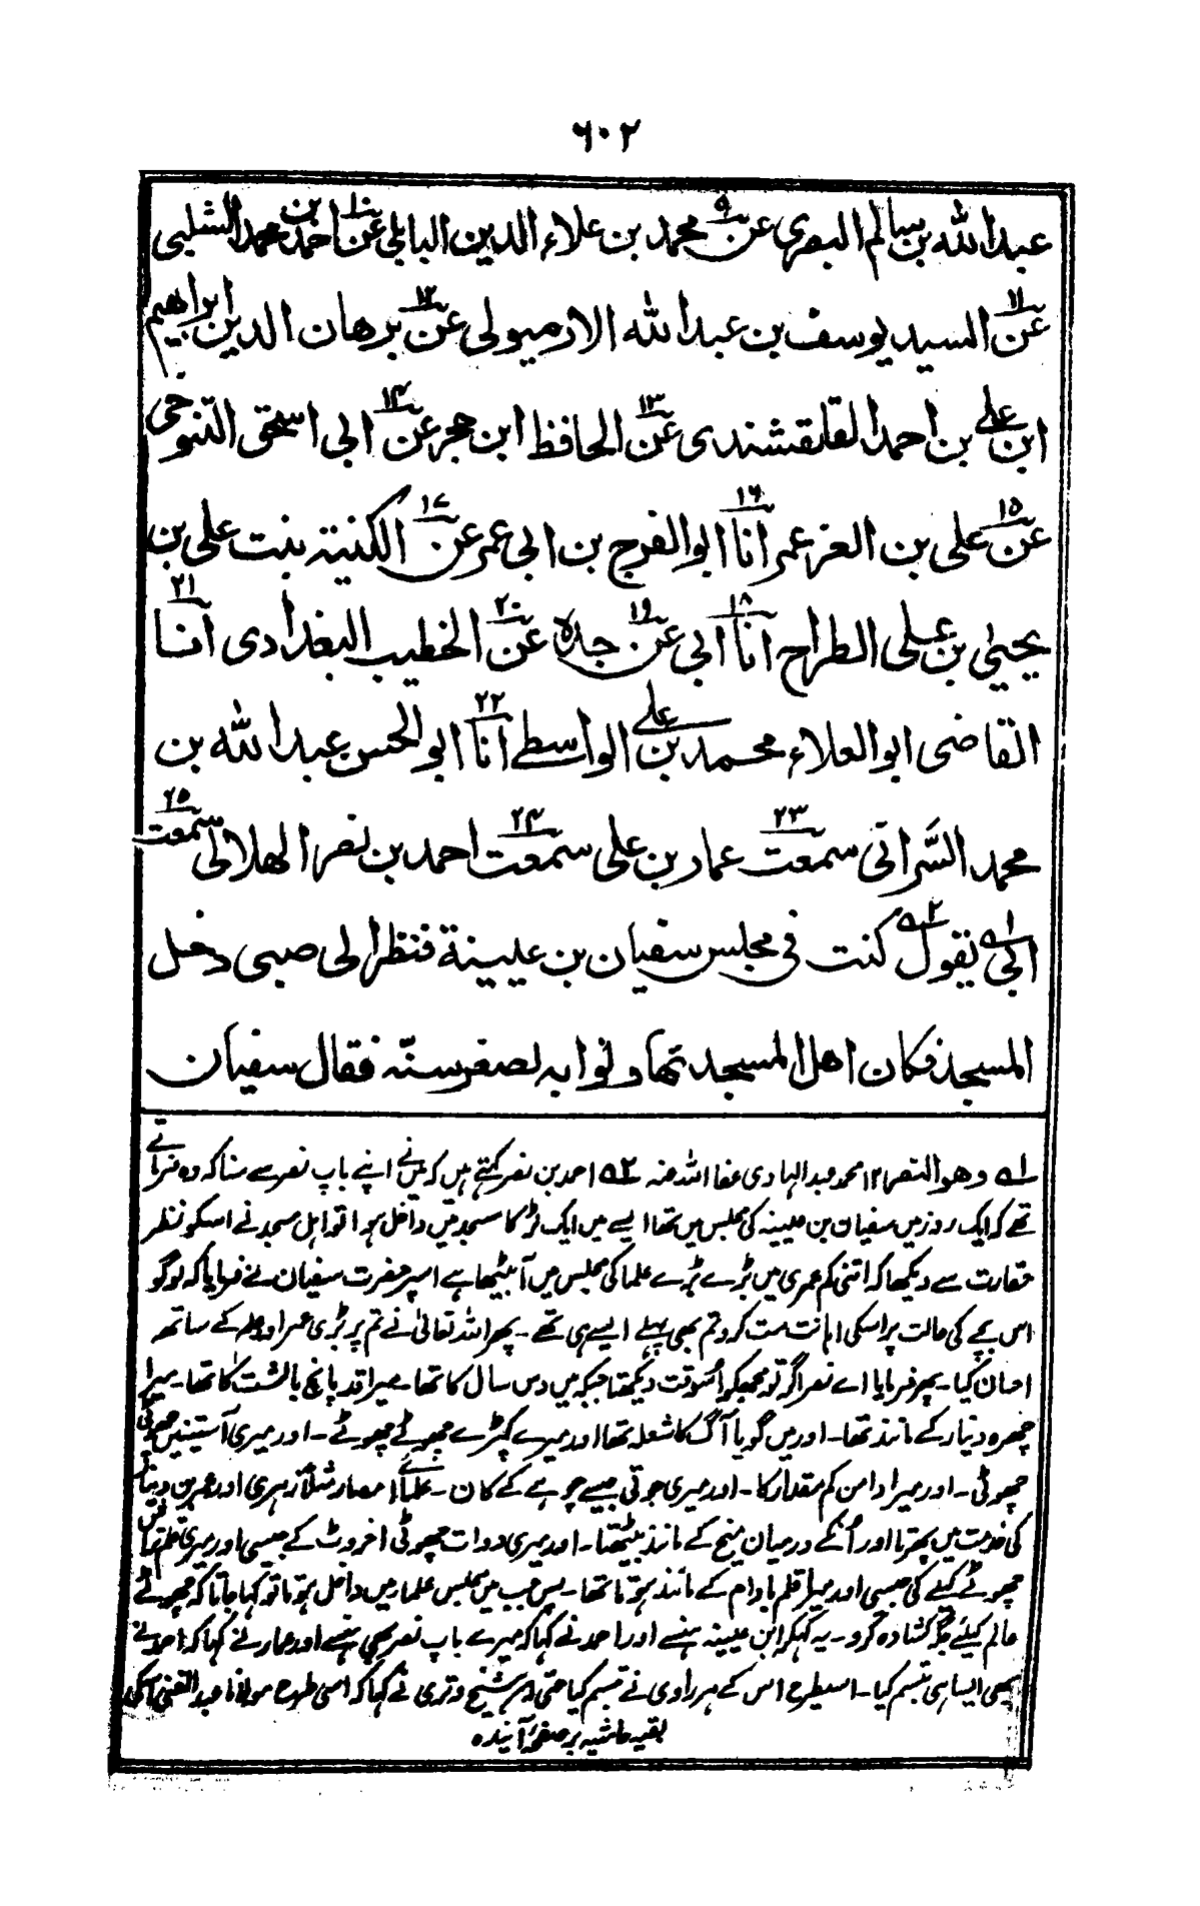 ٦٠٢
عبدالله بن سالم البصری عن ٩ محمد بن علاء الدین البابلی عن ١٠ احمد بن محمد الشلبی
١١ عن السید یوسف بن عبدالله الارمیولی عن ١٢ برهان الدین ابراهیم
ابن علی بن احمد القلقشندی عن ١٣ الحافظ ابن حجر عن ١٤ ابی اسحٰق التنوخی
١٥ عن علی بن العز عمر ١٦ انا ابو الفرج بن ابی عمر عن ١٧ الکنیة بنت علی بن
یحییٰ بن علی الطراح ١٨ انا ابی عن ١٩ جده عن ٢٠ الخطیب البغدادی ٢١ انا
القاضی ابو العلاء محمد بن علی الواسطے ٢٢ انا ابو الحسن عبد الله بن
محمد السَّراتی ٢٣ سمعت عمار بن علی ٢٤ سمعت احمد بن نصر الهلالی ٢٥ سمعت
ابی ۱ے یقول ۲ے کنت فی مجلس سفیان بن عیینة فنظر الی صبی دخل
المسجد فکان اهل المسجد تهاونوا به لصغر سنّه فقال سفیان
۱ے وهو النصر ۱۲ محمد عبد الہادی عفا اللہ عنہ ۲ے احمد بن نصر کہتے ہیں کہ میں نے اپنے باپ نصر سے سنا کہ وہ فرماتے
تھے کہ ایک روز میں سفیان بن عیینہ کی مجلس میں تھا ایسے میں ایک لڑکا مسجد میں داخل ہوا تو اہل مسجد نے اسکو نظر
حقارت سے دیکھا کہ اتنی کم عمری میں بڑے بڑے علما کی مجلس میں آبیٹھا ہے اسپر حضرت سفیان نے فرمایا کہ لوگو
اس بچے کی حالت پر اسکی اہانت مت کرو تم بھی پہلے ایسے ہی تھے ۔ پھر اللہ تعالیٰ نے تم پر بڑی عمر اور علم کے ساتھ
احسان کیا ۔ پھر فرمایا اے نصر اگر تو مجھکو اسوقت دیکھتا جبکہ میں دس سال کا تھا ۔ میرا قد پانچ بالشت کا تھا ۔ میرا
چہرہ دینار کے مانند تھا ۔ اور میں گویا آگ کا شعلہ تھا اور میرے کپڑے چھوٹے چھوٹے ۔ اور میری آستینیں چھوٹی
چھوٹی ۔ اور میرا دامن کم مقدار کا ۔ اور میری جوتی جیسے چوہے کے کان ۔ علمائے امصار مثلاً زہری اور عمرو بن دینار
کی خدمت میں پھرتا اور اُنکے درمیان میخ کے مانند بیٹھتا ۔ اور میری دوات چھوٹی اخروٹ کے جیسی اور میری قلمدان
چھوٹے کیلے کی جیسی اور میرا قلم بادام کے مانند ہوتا تھا ۔ پس جب میں مجلس علما میں داخل ہوتا تو کہا جاتا کہ چھوٹے
عالم کیلئے جگہ کشادہ کرو ۔ یہ کہکر ابن عیینہ ہنسے اور احمد نے کہا کہ میرے باپ نصر بھی ہنسے اور عمار نے کہا کہ احمد نے
بھی ایسا ہی تبسم کیا ۔ اسیطرح اس کے ہر راوی نے تبسم کیا حتی کہ شیخ وتری نے کہا کہ اسی طرح مولانا عبد الغنی
بقیہ حاشیہ بر صفحہ آیندہ